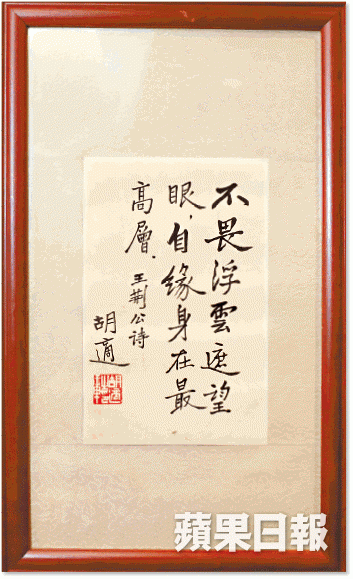 不畏浮雲遮望
眼，自缘身在最
高層．
王荆公诗
胡適
蘋果日報